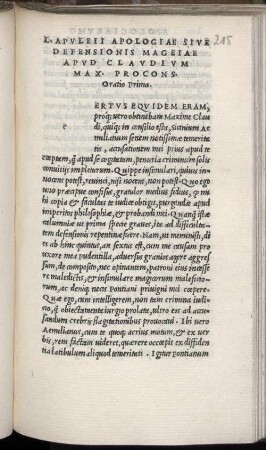 215
L. APVLEII APOLOGIAE SIVE
DEFENSIONIS MAGEIAE
APVD CLAVDIVM
MAX. PROCONS.
Oratio Prima.
ERTVS EQVIDEM ERAM,
proq; uero obtinebam Maxime Clau
e di, quiq; in consilio estis, Sicinium Ae
milianum senem notissimæ temerita
tis, accusationem mei prius apud te
cœptam, q̃ apud se cogitatam, penuria criminum solis
conuitijs impleturum. Quippe insimulari, quiuis in=
nocens potest, reuinci, nisi nocens, non potest. Quo ego
uno præcipue confisus, gratulor medius fidius, q̃ mi
hi copia & facultas te iudice obtigit, purgandæ apud
imperitos philosophiæ, & probandi mei. Quanq̃ istæ
calumniæ ut prima specie graues, ita ad difficulta=
tem defensionis repentinæ fuere. Nam, ut meministi, di=
es ab hinc quintus, an sextus est, cum me causam pro
uxore mea pudentilla, aduersus granios agere aggres=
sum, de composito, nec opinantem, patroni eius incesse=
re maledictis, & insimulare magicorum maleficio=
rum, ac deniq; necis Pontiani priuigni mei cœpere.
Quæ ego, cum intelligerem, non tam crimina iudi=
cio, q̃ obiectamenta iurgio prolata, ultro eos ad accu=
sandum crebris flagitationibus prouocaui. Ibi uero
Aemilianus, cum te quoq; acrius motum, & ex uer
bis, rem factam uideret, quærere occœpit ex diffiden
tia latibulum aliquod temeritati. Igitur pontianum